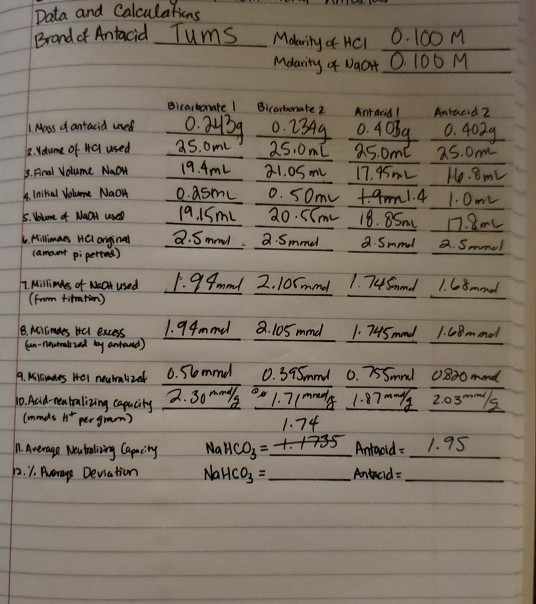 Data and Calculations
Brand of Antacid Tums Molarity of HCl 0.100 M
Molarity of NaOH 0.100 M
Bicarbonate 1 Bicarbonate 2 Antacid 1 Antacid 2
1. Mass of antacid used 0.243g 0.234g 0.403g 0.402g
2. Volume of HCl used 25.0mL 25.0mL 25.0mL 25.0mL
3. Final Volume NaOH 19.4mL 21.05mL 17.45mL 16.8mL
4. Initial Volume NaOH 0.25mL 0.50mL 1.4 1.0mL
5. Volume of NaOH used 19.15mL 20.55mL 18.85mL 17.8mL
6. Millimoles HCl original 2.5mmol 2.5mmol 2.5mmol 2.5mmol
(amount pipetted)
7. Millimoles of NaOH used 1.94mmol 2.105mmol 1.745mmol 1.68mmol
(from titration)
8. Millimoles HCl excess 1.94mmol 2.105mmol 1.745mmol 1.68mmol
(un-neutralized by antacid)
9. Millimoles HCl neutralized 0.56mmol 0.395mmol 0.755mmol 0.820mmol
10. Acid-neutralizing capacity 2.30mmol/g 1.71mmol/g 1.87mmol/g 2.03mmol/g
(mmols H+ per gram)
1.74
11. Average Neutralizing Capacity NaHCO3 = 1.1735 Antacid = 1.95
12. % Average Deviation NaHCO3 = Antacid =